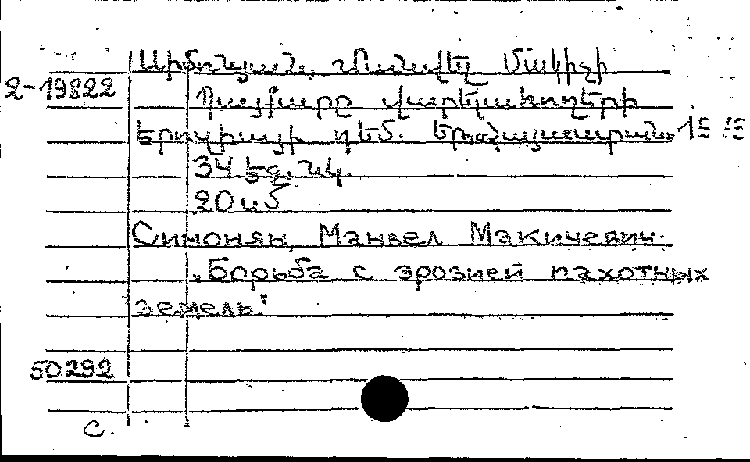 Սիմոնյան, Մանվել Մակիչի
2-19822
Պայքարը վարելահողերի
էրոզիայի դեմ.
34 էջ. նկ.
20 սմ
Симонян, Манвел Макичевич.
„Борьба с эрозией пахотных
земель."
50292
с.